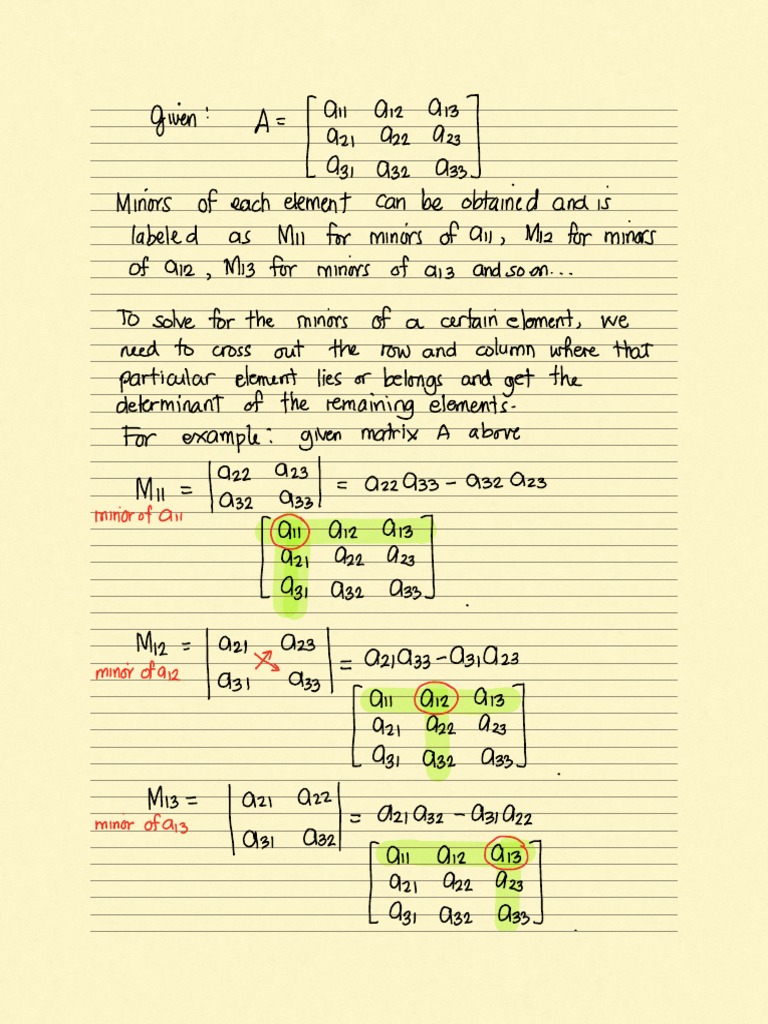 Given: A = [ a11 a12 a13
a21 a22 a23
a31 a32 a33 ]
Minors of each element can be obtained and is
labeled as M11 for minors of a11, M12 for minors
of a12, M13 for minors of a13 and so on...
To solve for the minors of a certain element, we
need to cross out the row and column where that
particular element lies or belongs and get the
determinant of the remaining elements.
For example: given matrix A above
M11 = | a22 a23
a32 a33 | = a22 a33 - a32 a23
minor of a11
[ a11 a12 a13
a21 a22 a23
a31 a32 a33 ]
M12 = | a21 a23
a31 a33 | = a21a33 - a31a23
minor of a12
[ a11 a12 a13
a21 a22 a23
a31 a32 a33 ]
M13 = | a21 a22
a31 a32 | = a21 a32 - a31 a22
minor of a13
[ a11 a12 a13
a21 a22 a23
a31 a32 a33 ]